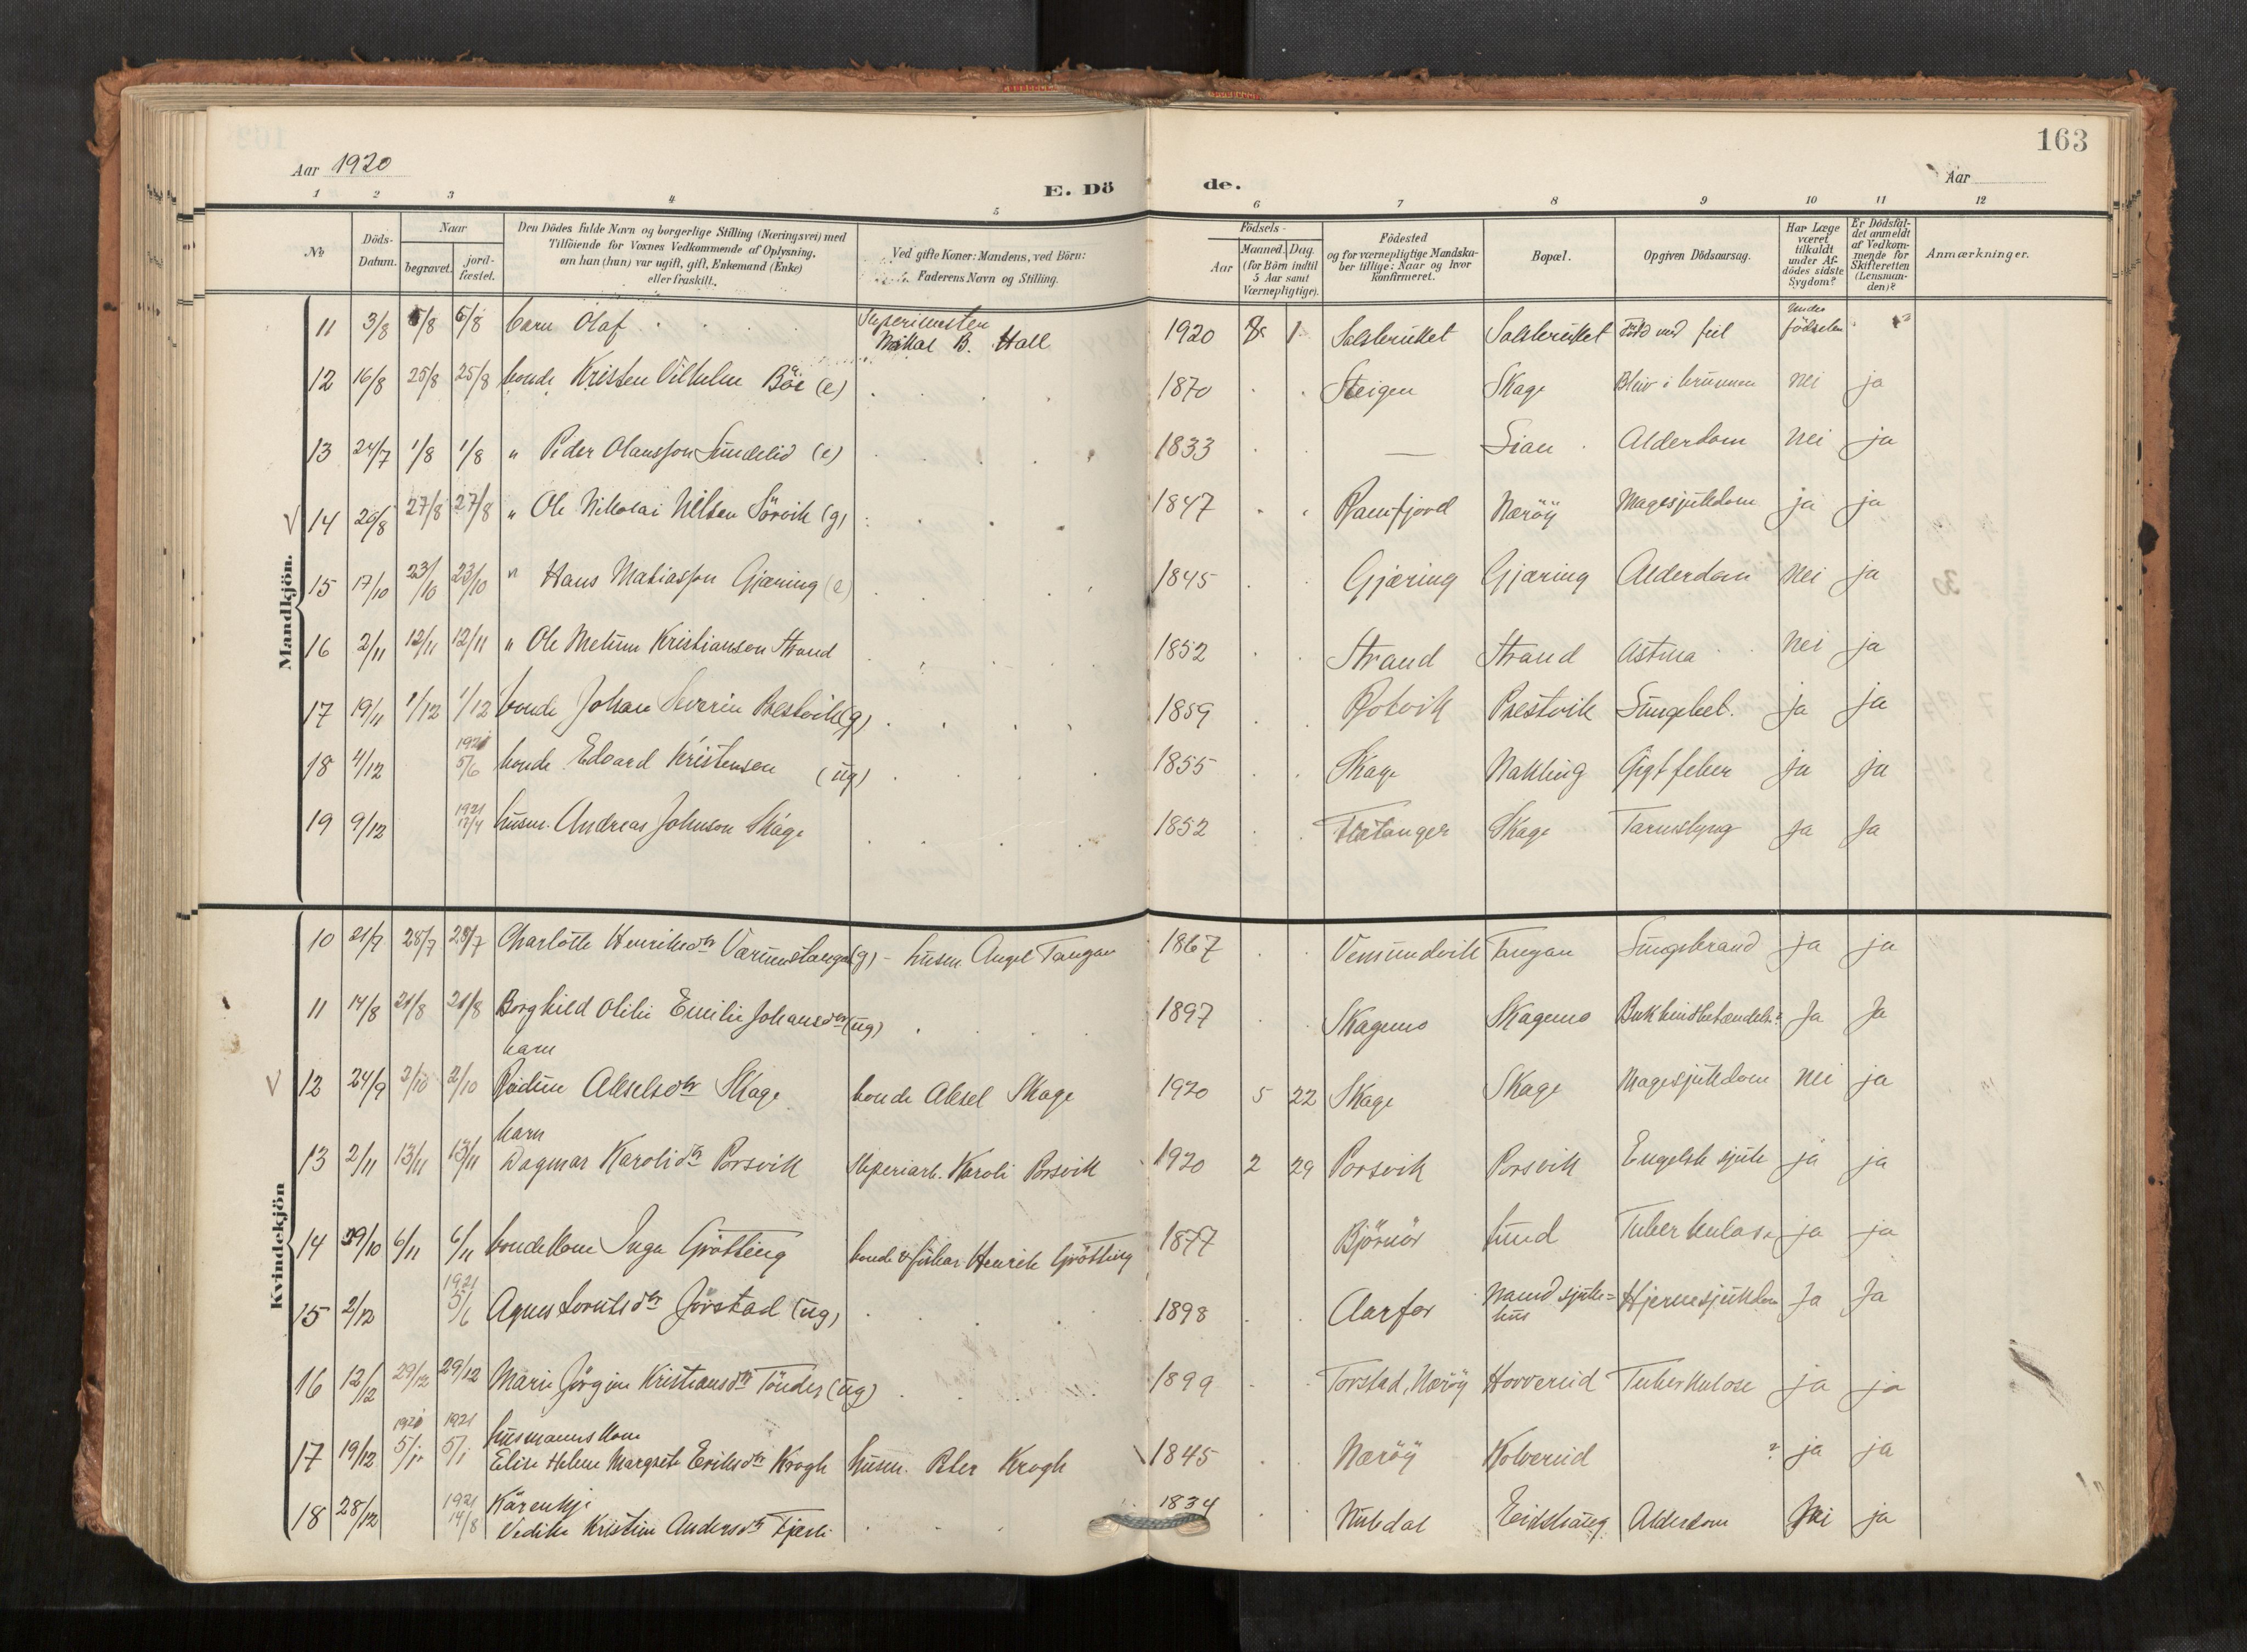 163
Aar 1920
E. Dö de.
Aar
1 2 3 4 5 6 7 8 9 10 11 12
№
Döds-Datum.
Naar
begravet.
jord-fæstet.
Den Dödes fulde Navn og borgerlige Stilling (Næringsvei) med
Tilföiende for Voxnes Vedkommende af Oplysning,
om han (hun) var ugift, gift, Enkemand (Enke)
eller fraskilt.
Ved gifte Koner: Mandens, ved Börn:
Faderens Navn og Stilling.
Födsels-
Aar
Maaned. Dag.
(for Börn indtil
5 Aar samt
Værnepligtige).
Födested
og for værnepligtige Mandska-
ber tillige: Naar og hvor
konfirmeret.
Bopæl.
Opgiven Dödsaarsag.
Har Læge
været
tilkaldt
under Af-
dödes sidste
Sygdom?
Er Dödsfal-
det anmeldt
af Vedkom-
mende for
Skifteretten
(Lensman-
den)?
Anmærkninger.
Mandkjön.
11 3/8 6/8 barn Olaf B. Hall 1920 8 1 Salsbruket Salsbruket under födselen
12 16/8 25/8 25/8 bonde Kristen Vilhelm Böe (e) 1870 Steigen Skage nei ja
13 24/7 1/8 1/8 " Peder Olausson Sundelid (e) 1833 — Lian Alderdom nei ja
14 20/8 27/8 27/8 " Ole Nikolai Nilsen Sörvik (g) 1847 Ramfjord Nærøy Magesjukdom ja ja
15 17/10 23/10 23/10 " Hans Matiasson Gjæring (e) 1845 Gjæring Gjæring Alderdom nei ja
16 2/11 12/11 12/11 " Ole Kristianson Strand 1852 Strand Strand Astma nei ja
17 19/11 1/12 1/12 bonde Johan Severin Prestvik (g) 1859 Rotvik Prestvik Lungebet. ja ja
18 4/12 1921 5/6 bonde Edvard Kristenson (ug) 1855 Skage Nakling Gigtfeber ja ja
19 9/12 1921 17/4 husm. Andreas Johnson Skage 1852 Skage Tarmslyng ja ja
Kvindekjön
10 21/7 28/7 28/7 Charlotte Henriksdtr (g) - husm. Angel Tangan 1867 Vemundvik Tangan Lungebrand ja ja
11 14/8 21/8 21/8 Borghild Olilie Emilie Johansdtr (ug) 1897 Skagemo Skagemo Bukhindbetændelse ja ja
barn
12 24/9 2/10 2/10 Akselsdtr Skage bonde Aksel Skage 1920 5 22 Skage Skage Magesjukdom nei ja
barn
13 2/11 13/11 13/11 Dagmar Karolidtr Porsvik Karoli Porsvik 1920 2 29 Porsvik Porsvik Engelsk sjuke ja ja
14 29/10 6/11 6/11 bondekone Inga Grötting bonde & fiskar Henrik Grötting 1877 Björnör Lund Tuberkulose ja ja
15 2/12 1921 5/6 Agnes Lorntsdtr Jörstad (ug) 1898 Aarfor Namd sjuke=hus Hjernesjukdom Ja Ja
16 12/12 29/12 29/12 Marie Jörgine Kristiansdtr Tönder (ug) 1899 Torstad, Nærøy Tuberkulose ja ja
husmannskone
17 19/12 1921 5/1 1921 5/1 Elise Helene Margrete Eriksdtr Krogh husm. Peter Krogh 1845 Nærøy Kolvereid ? ja ja
18 28/12 1921 14/8 Kårenkje
Vedike Kristine Andersdtr Fjærli 1834 Alderdom Nei ja